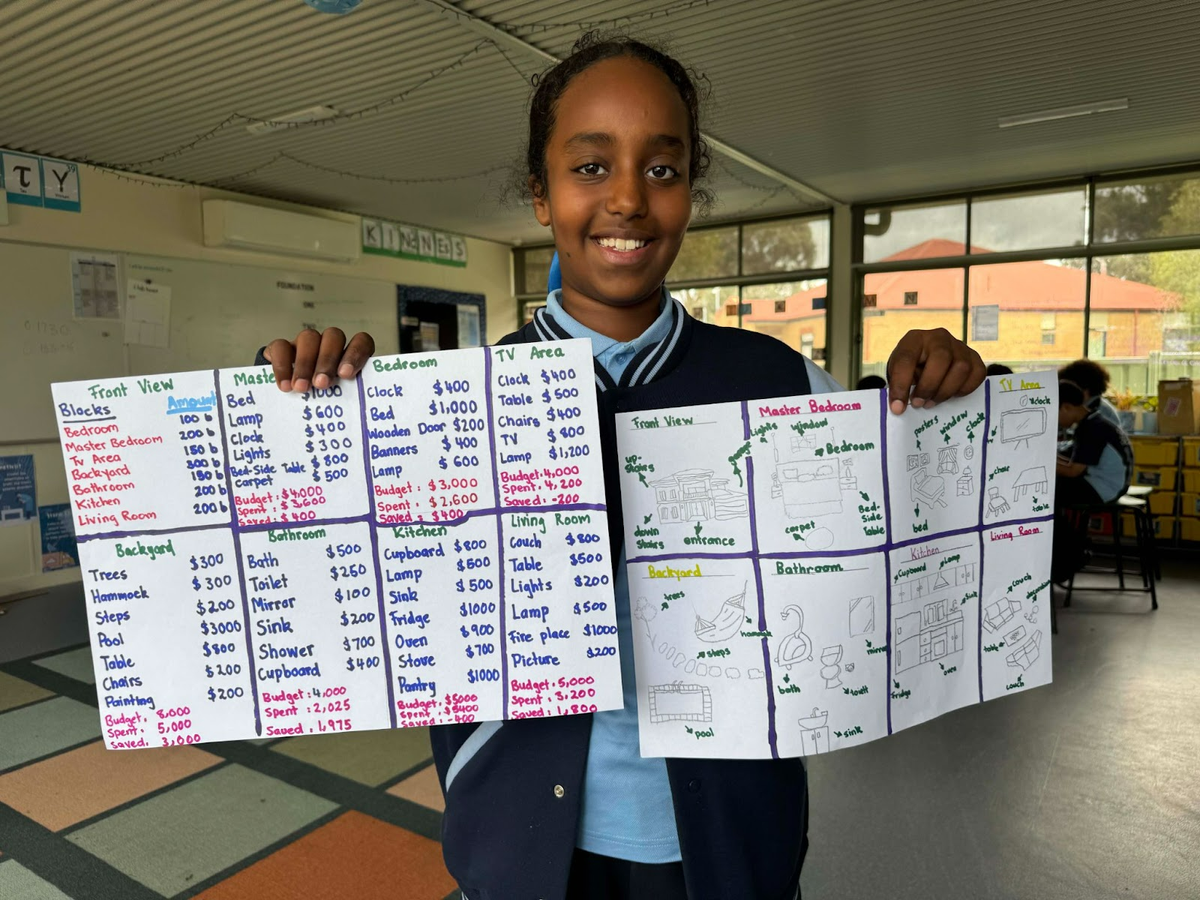 τ γ
KINDNES
FOUNDATION
Front View
Blocks Amount
Bedroom 100 b
Master Bedroom 200 b
Tv Area 150 b
Backyard 300 b
Bathroom 150 b
Kitchen 200 b
Living Room 200 b
Bed $1000
Lamp $600
Clock $400
Lights $300
Bed-Side Table $800
Carpet $500
Budget: $4,000
Spent: $3,600
Saved: $400
Bedroom
Clock $400
Bed $1,000
Wooden Door $200
Banners $400
Lamp $600
Budget: $3,000
Spent: $2,600
Saved: $400
TV Area
Clock $400
Table $500
Chairs $400
TV $800
Lamp $1,200
Budget: 4,000
Spent: 4,200
Saved: -200
Backyard
Trees $300
Hammock $300
Steps $200
Pool $3000
Table $800
Chairs $200
Painting $200
Budget: 8,000
Spent: 5,000
Saved: 3,000
Bathroom
Bath $500
Toilet $250
Mirror $100
Sink $200
Shower $700
Cupboard $400
Budget: 4,000
Spent: 2,025
Saved: 1,975
Kitchen
Cupboard $800
Lamp $500
Sink $500
Fridge $1000
Oven $900
Stove $700
Pantry $1000
Budget: $5000
Spent: $5400
Saved: -400
Living Room
Couch $800
Table $500
Lights $200
Lamp $500
Fire place $1000
Picture $200
Budget: 5,000
Spent: 3,200
Saved: 1,800
Front View
up-stairs
down stairs
entrance
Master Bedroom
lights
window
Bedroom
carpet
Bed-Side Table
posters
window
clock
bed
TV Area
clock
chair
table
Backyard
trees
steps
pool
Bathroom
bath
mirror
sink
Kitchen
Cupboard
Lamp
sink
fridge
oven
Living Room
couch
table
couch